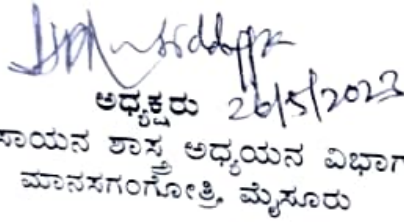 ಅಧ್ಯಕ್ಷರು 26/5/2023
ಸಾಯನ ಶಾಸ್ತ್ರ ಅಧ್ಯಯನ ವಿಭಾಗ
ಮಾನಸಗಂಗೋತ್ರಿ, ಮೈಸೂರು